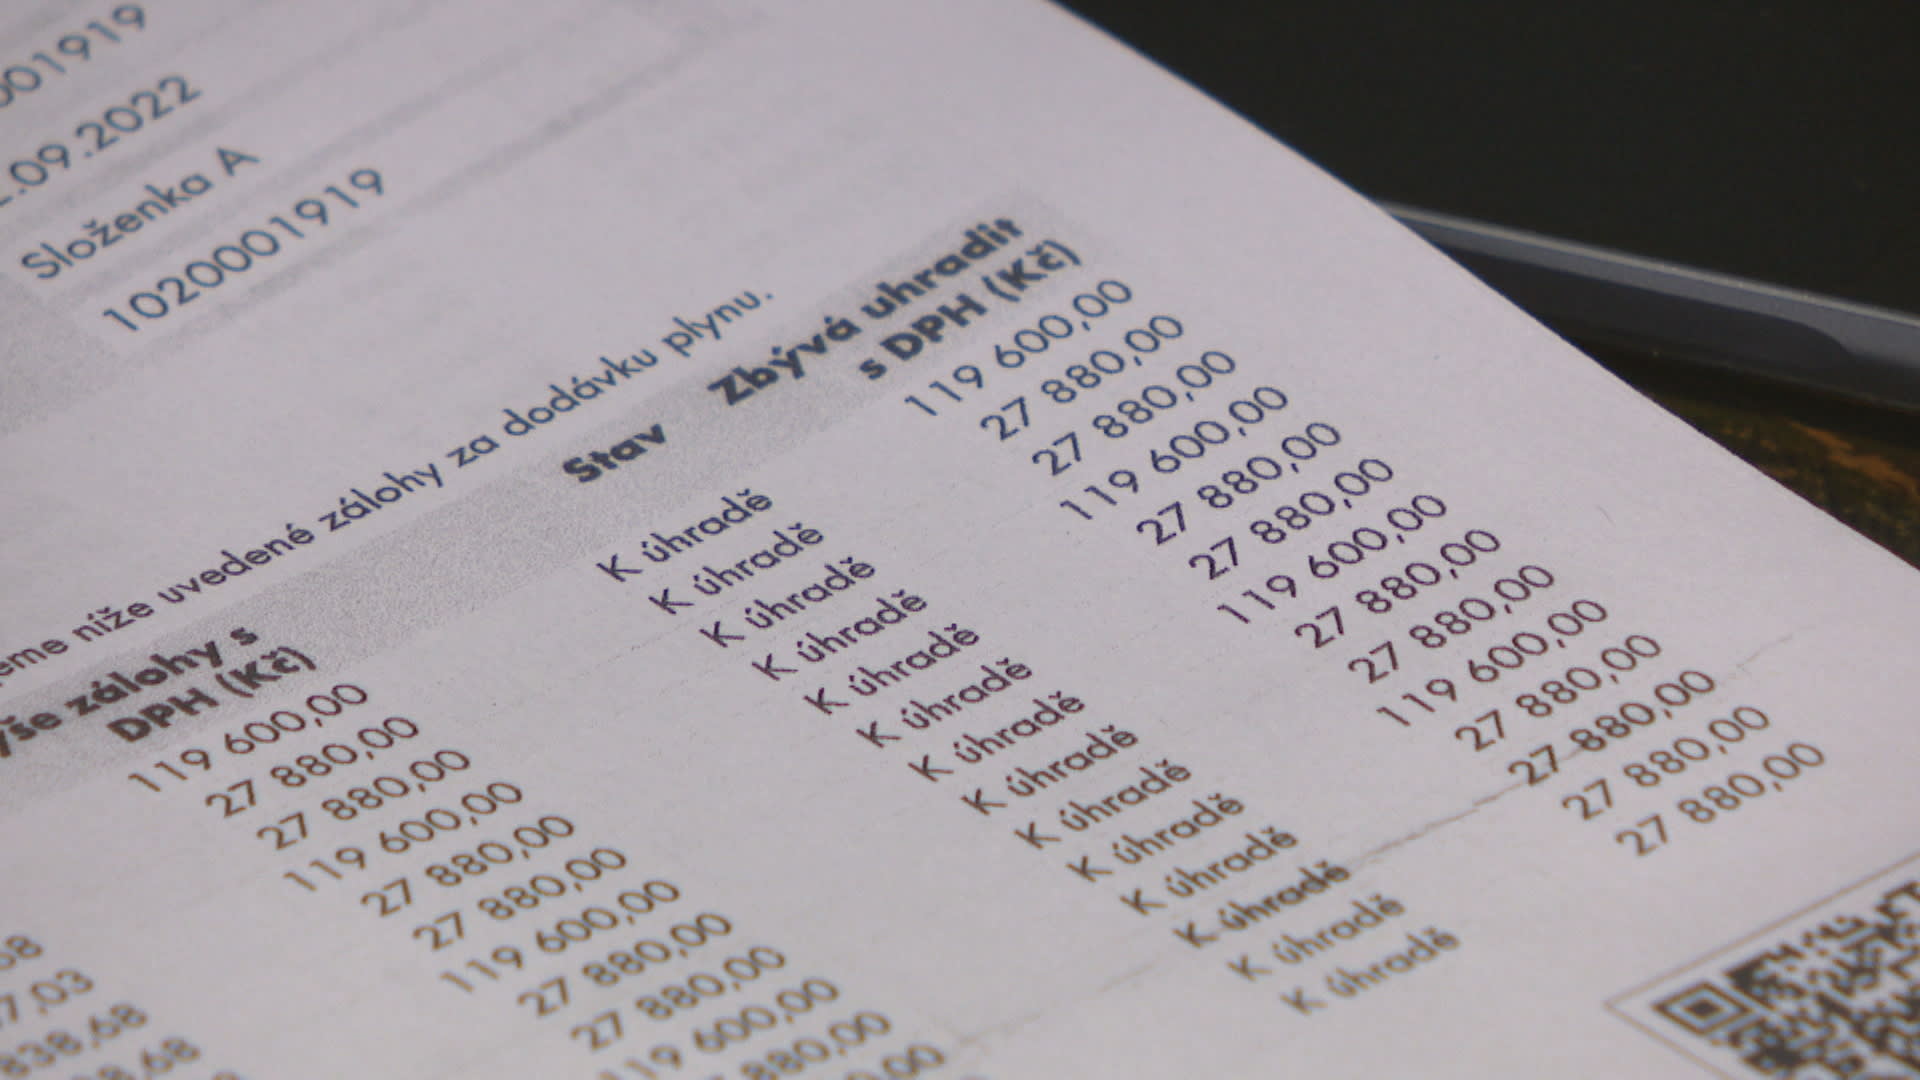 001919
.09.2022
Složenka A
1020001919
jeme níže uvedené zálohy za dodávku plynu.
ýše zálohy s DPH (Kč) Stav Zbývá uhradit s DPH (Kč)
119 600,00 K úhradě 119 600,00
27 880,00 K úhradě 27 880,00
27 880,00 K úhradě 27 880,00
119 600,00 K úhradě 119 600,00
27 880,00 K úhradě 27 880,00
27 880,00 K úhradě 27 880,00
119 600,00 K úhradě 119 600,00
27 880,00 K úhradě 27 880,00
27 880,00 K úhradě 27 880,00
119 600,00 K úhradě 119 600,00
880,00 K úhradě 27 880,00
K úhradě 27 880,00
K úhradě 27 880,00
K úhradě 27 880,00
7,03
838,68